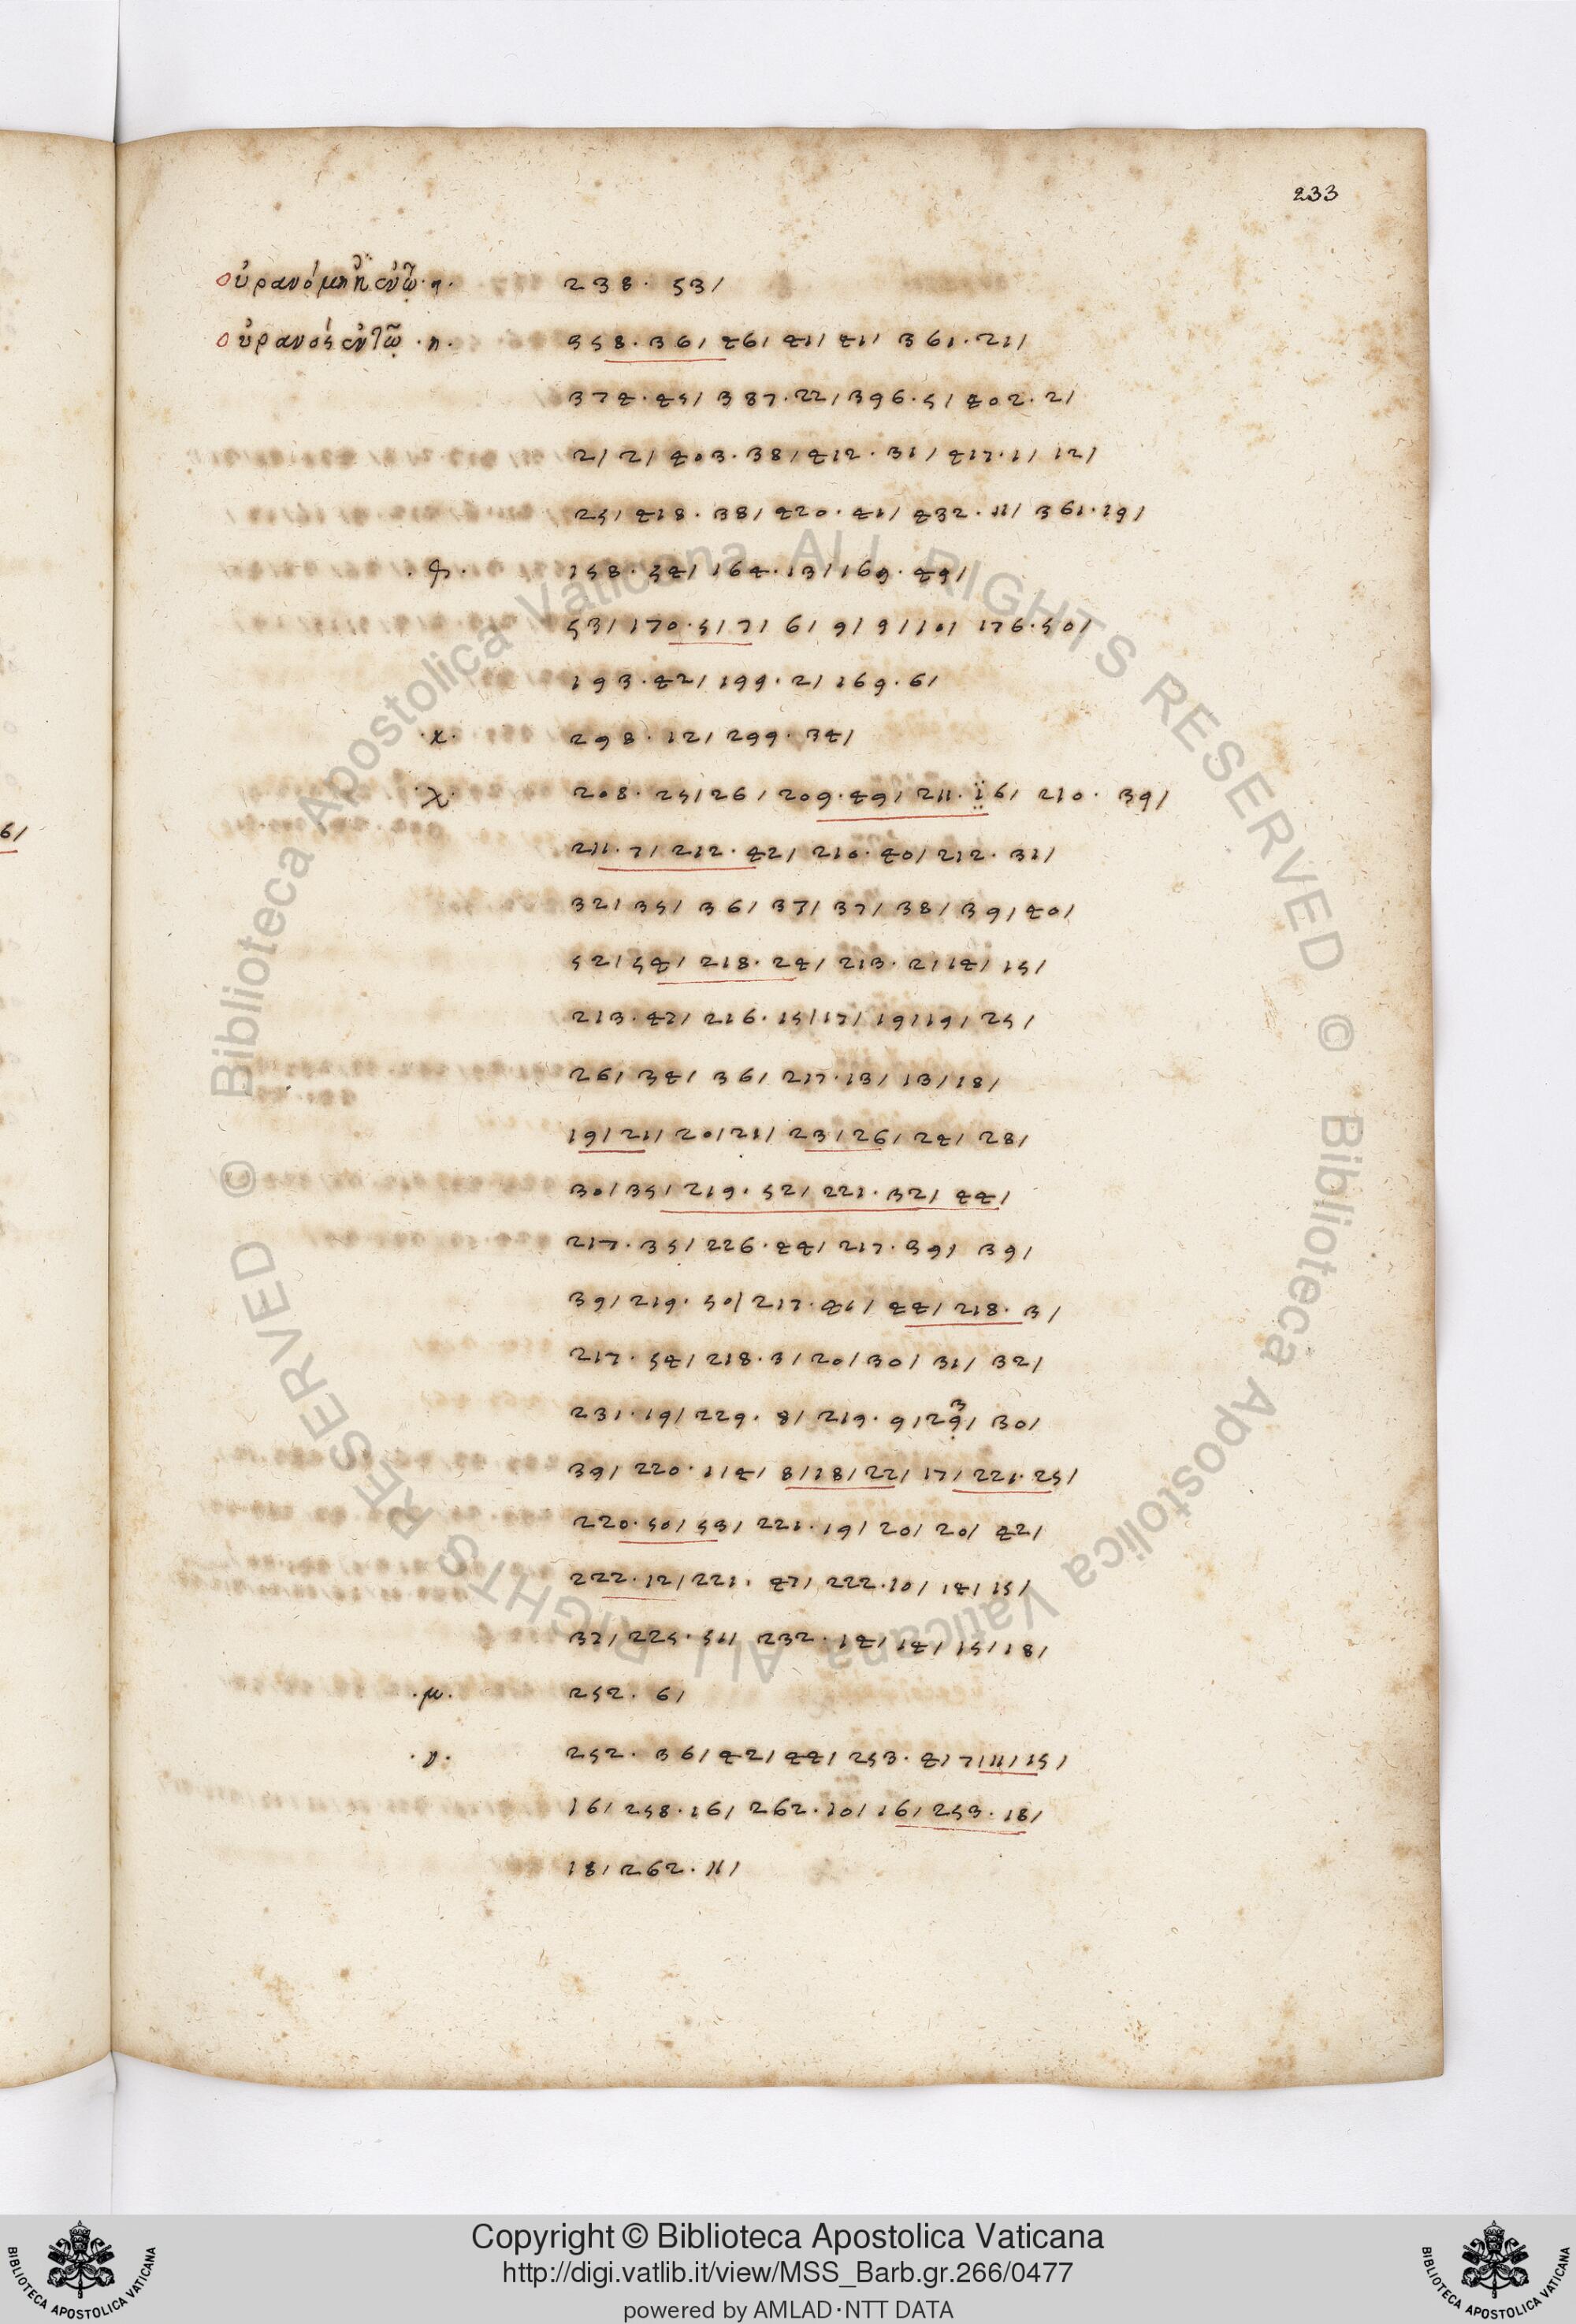 233
οὐρανόμηκη ἐν τῷ ·η· 238 · 53/
οὐρανός ἐν τῷ ·η· 358 · 36/ 46/ 41/ 41/ 361 · 21/
374 · 45/ 387 · 22/ 396 · 5/ 402 · 2/
2/ 2/ 403 · 38/ 412 · 31/ 417 · 1/ 12/
25/ 418 · 38/ 420 · 41/ 432 · 11/ 361 · 19/
158 · 54/ 164 · 13/ 169 · 49/
53/ 170 · 5/ 7/ 6/ 9/ 9/ 10/ 176 · 50/
193 · 42/ 199 · 2/ 169 · 6/
·κ· 298 · 12/ 299 · 34/
·λ· 208 · 25/ 26/ 209 · 49/ 211 · 16/ 210 · 39/
211 · 7/ 212 · 42/ 210 · 40/ 212 · 31/
32/ 35/ 36/ 37/ 37/ 38/ 39/ 40/
52/ 54/ 218 · 24/ 213 · 2/ 14/ 15/
213 · 47/ 216 · 15/ 17/ 19/ 19/ 25/
26/ 34/ 36/ 217 · 13/ 13/ 18/
19/ 21/ 20/ 21/ 23/ 26/ 24/ 28/
30/ 35/ 219 · 52/ 221 · 32/ 44/
217 · 35/ 226 · 44/ 217 · 39/ 39/
39/ 219 · 50/ 217 · 46/ 44/ 218 · 3/
217 · 54/ 218 · 3/ 20/ 30/ 31/ 32/
231 · 19/ 229 · 8/ 219 · 9/ 29/ 30/
39/ 220 · 1/ 4/ 8/ 18/ 22/ 17/ 221 · 25/
220 · 50/ 53/ 221 · 19/ 20/ 20/ 42/
222 · 12/ 221 · 47/ 222 · 10/ 14/ 15/
37/ 225 · 51/ 232 · 14/ 14/ 15/ 18/
·μ· 252 · 6/
·ν· 252 · 36/ 42/ 44/ 253 · 4/ 7/ 11/ 15/
16/ 258 · 16/ 262 · 10/ 16/ 253 · 18/
18/ 262 · 11/
6/
© Biblioteca Apostolica Vaticana ALL RIGHTS RESERVED © Biblioteca Apostolica Vaticana ALL RIGHTS RESERVED
Copyright © Biblioteca Apostolica Vaticana
http://digi.vatlib.it/view/MSS_Barb.gr.266/0477
powered by AMLAD·NTT DATA
BIBLIOTECA APOSTOLICA VATICANA
BIBLIOTECA APOSTOLICA VATICANA